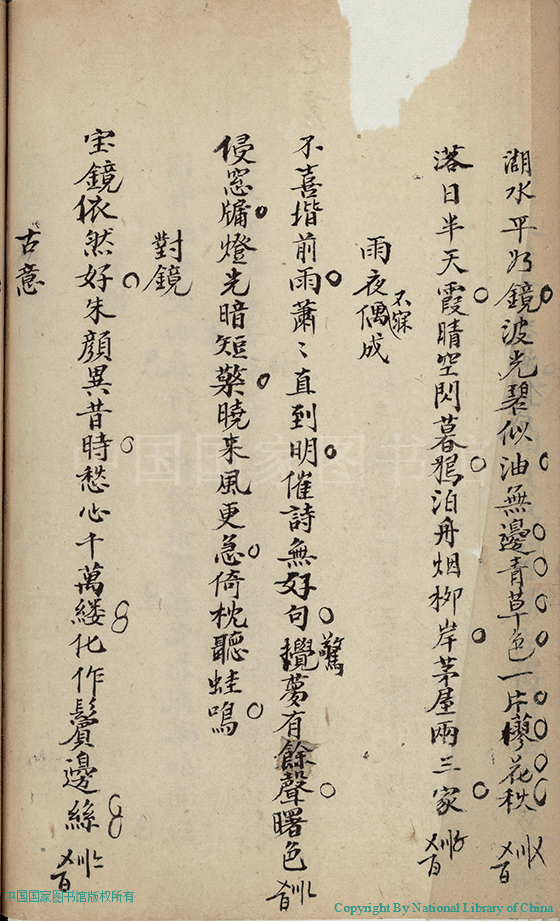 湖水平於鏡波光碧似油無邊青草色一片蓼花秋
落日半天霞晴空閃暮鴉泊舟烟柳岸茅屋兩三家
雨夜偶成
不寐
不喜堦前雨蕭〻直到明催詩無好句攪夢有餘聲曙色
驚
侵窓牖燈光暗短檠曉来風更急倚枕聽蛙鳴
對鏡
宝鏡依然好朱顔異昔時愁心千萬縷化作鬢邊絲
古意
中国国家图书馆
中国国家图书馆版权所有
Copyright By National Library of China